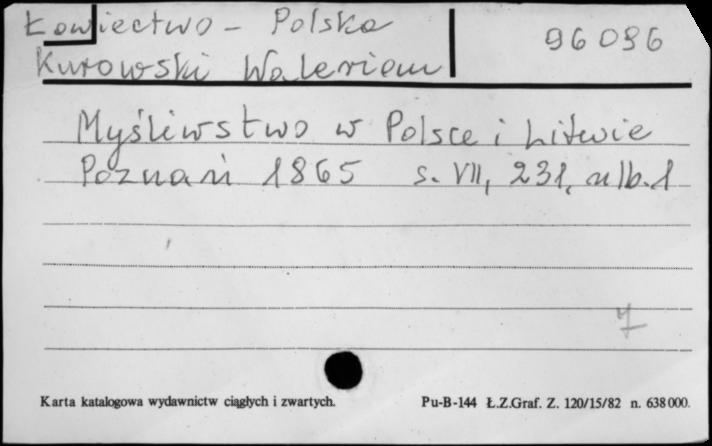 Łowiectwo - Polska
96096
Kurowski Walerian
Myśliwstwo w Polsce i Litwie
Poznań 1865 s. VII, 231, nlb. 1
7
Karta katalogowa wydawnictw ciągłych i zwartych. Pu-B-144 Ł.Z.Graf. Z. 120/15/82 n. 638000.